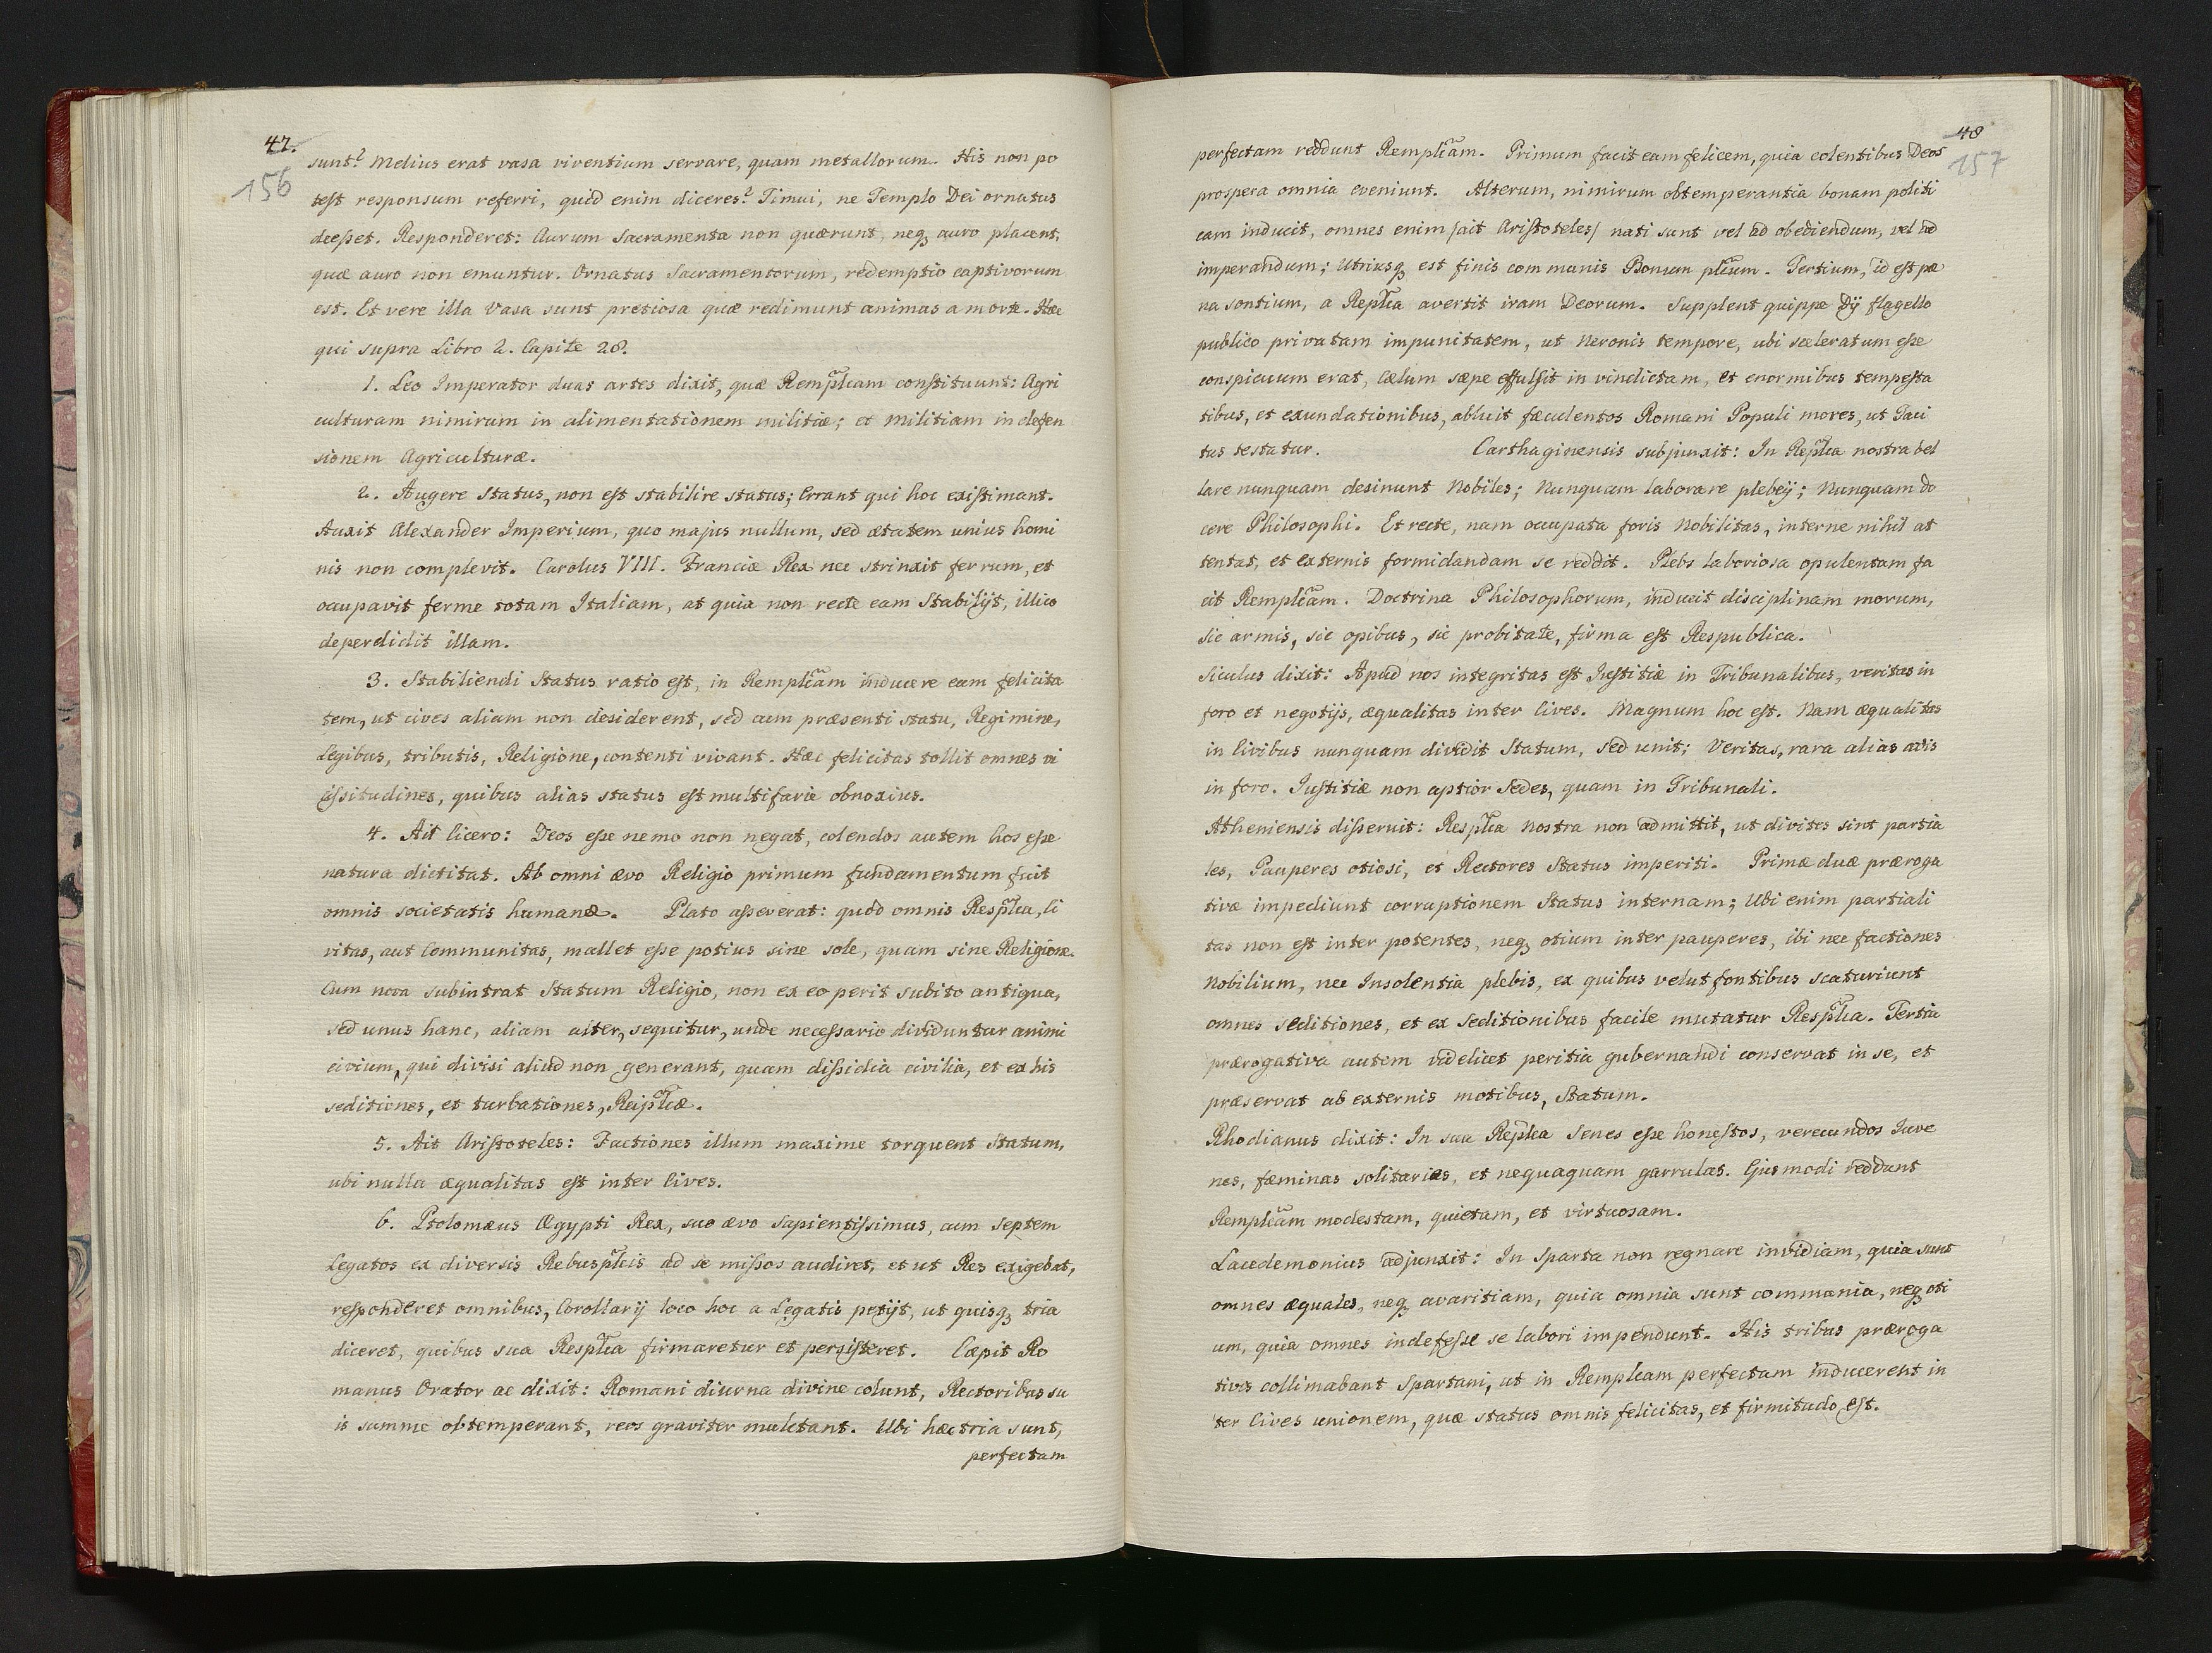 47.
156
sunt? Melius erat vasa viventium servare, quam metallorum. His non po
test responsum referri, quid enim diceres? Timui, ne Templo Dei ornatus
deesset. Responderet: Aurum Sacramenta non quærunt, neq₃ auro placent,
quæ auro non emuntur. Ornatus Sacramentorum, redemptio captivorum
est. Et vere illa Vasa sunt pretiosa quæ redimunt animas a morte. Hæc
qui supra Libro 2. Capite 28.
1. Leo Imperator duas artes dixit, quæ Remplicam constituunt: Agri
culturam nimirum in alimentationem militiæ; et Militiam in defen
sionem Agriculturæ.
2. Augere Status, non est stabilire status; Errant qui hoc existimant.
Auxit Alexander Imperium, quo majus nullum, sed ætatem unius homi
nis non complevit. Carolus VIII. Franciæ Rex nec strinxit ferrum, et
occupavit ferme totam Italiam, at quia non recte eam Stabilijt, illico
deperdidit illam.
3. Stabiliendi Status ratio est, in Remplicam inducere eam felicita
tem, ut cives aliam non desiderent, sed cum præsenti statu, Regimine,
Legibus, tributis, Religione, contenti vivant. Hæc felicitas tollit omnes vi
cissitudines, quibus alias status est multifarie obnoxius.
4. Ait Cicero: Deos esse nemo non negat, colendos autem hos esse
natura dictitat. Ab omni ævo Religio primum fundamentum fuit
omnis societatis humanæ. Plato asseverat: quod omnis Resplica, Ci
vitas, aut Communitas, mallet esse potius sine sole, quam sine Religione.
Cum nova subintrat Statum Religio, non ex eo perit subito antiqua,
sed unus hanc, aliam alter, sequitur, unde necessario dividuntur animi
civium, qui divisi aliud non generant, quam dissidia civilia, et ex his
seditiones, et turbationes, Reiplicæ.
5. Ait Aristoteles: Factiones illum maxime torquent Statum,
ubi nulla æqualitas est inter Cives.
6. Ptolomæus Ægypti Rex, suo ævo sapientissimus, cum septem
Legatos ex diversis Rebusplicis ad se missos audiret, et ut Res exigebat,
responderet omnibus, Corollarij loco hoc a Legatis petijt, ut quisq₃ tria
diceret, quibus sua Resplica firmaretur et persisteret. Cæpit Ro
manus Orator ac dixit: Romani diurna divine colunt, Rectoribus su
is summe obtemperant, reos graviter mulctant. Ubi hæc tria sunt,
perfectam
48
157
perfectam reddunt Remplicam. Primum facit eam felicem, quia colentibus Deos
prospera omnia eveniunt. Alterum, nimirum obtemperantia bonam politi
cam inducit, omnes enim /ait Aristoteles/ nati sunt vel ad obediendum, vel ad
imperandum; Utriusq₃ est finis communis Bonum plicum. Tertium, id est pæ
na sontium, a Replica avertit iram Deorum. Supplent quippe Dij flagello
publico privatam impunitatem, ut Neronis tempore, ubi sceleratum esse
conspicuum erat, Cælum sæpe effulsit in vindictam, et enormibus tempesta
tibus, et exundationibus, abluit fæculentos Romani Populi mores, ut Taci
tus testatur. Carthaginensis subjunxit: In Replica nostra bel
lare nunquam desinunt Nobiles; Nunquam laborare plebeij; Nunquam do
cere Philosophi. Et recte, nam occupata foris Nobilitas, interne nihil at
tentat, et externis formidandam se reddit. Plebs laboriosa opulentam fa
cit Remplicam. Doctrina Philosophorum, inducit disciplinam morum,
sic armis, sic opibus, sic probitate, firma est Respublica.
Siculus dixit: Apud nos integritas est Justitiæ in Tribunalibus, veritas in
foro et negotijs, æqualitas inter Cives. Magnum hoc est. Nam æqualitas
in Civibus nunquam dividit Statum, sed unit; Veritas, rara alias avis
in foro. Justitiæ non aptior Sedes, quam in Tribunali.
Atheniensis disseruit: Resplica nostra non admittit, ut divites sint partia
les, Pauperes otiosi, et Rectores Status imperiti. Primæ duæ præroga
tivæ impediunt corruptionem Status internam; Ubi enim partiali
tas non est inter potentes, neq₃ otium inter pauperes, ibi nec factiones
Nobilium, nec Insolentia plebis, ex quibus velut fontibus scaturiunt
omnes seditiones, et ex Seditionibus facile mutatur Resplica. Tertia
prærogativa autem videlicet peritia gubernandi conservat in se, et
præservat ab externis motibus, Statum.
Rhodianus dixit: In sua Replica Senes esse honestos, verecundos Juve
nes, fæminas solitarias, et nequaquam garrulas. Ejusmodi reddunt
Remplicam modestam, quietam, et virtuosam.
Lacedemonius adjunxit: In Sparta non regnare invidiam, quia sunt
omnes æquales, neq₃ avaritiam, quia omnia sunt communia, neq₃ oti
um, quia omnes indefesse se labori impendunt. His tribus præroga
tivis collimabant Spartani, ut in Remplicam perfectam inducerent in
ter Cives unionem, quæ status omnis felicitas, et firmitudo est.